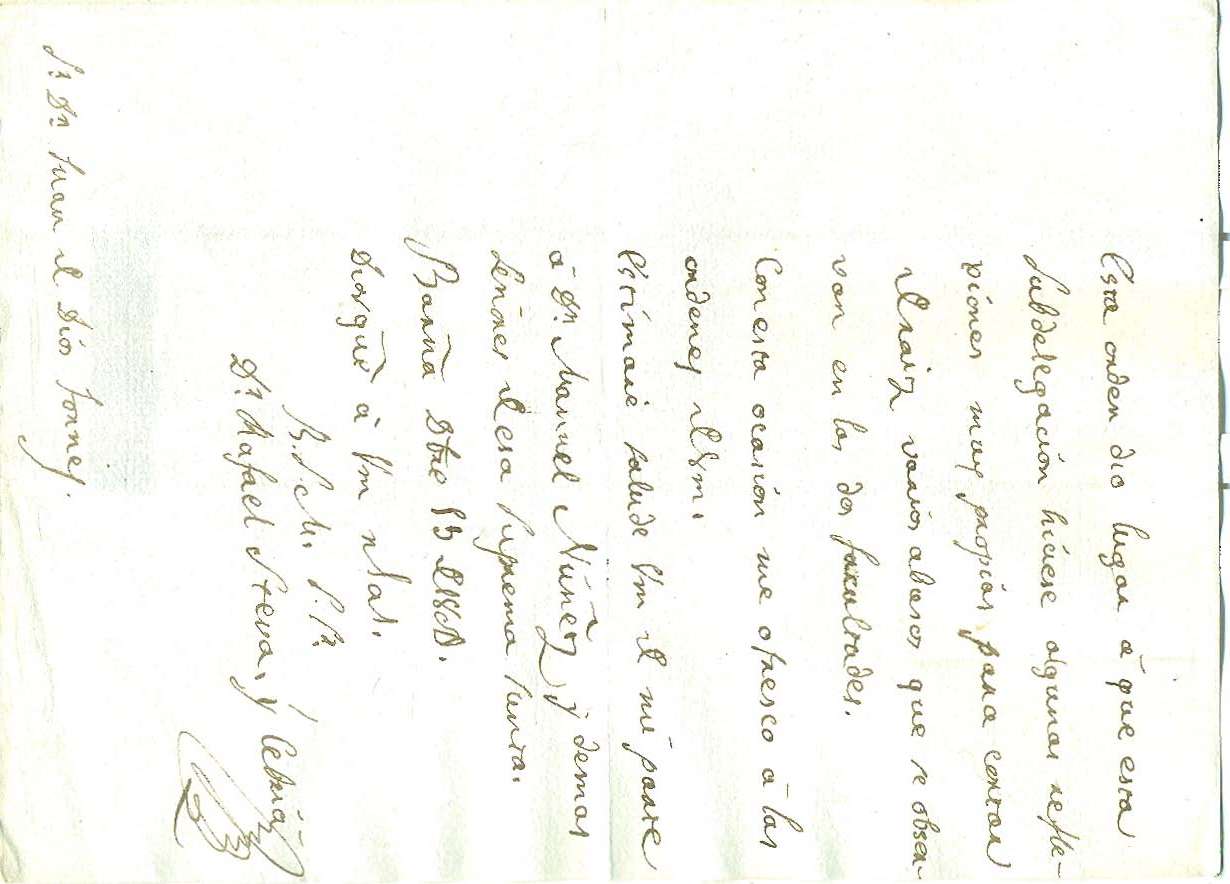 Esta orden dio lugar á que esta
Subdelegación hiciese algunas refle-
xiones muy propias para cortar
de raiz varios abusos que se obser-
van en las dos facultades.
Con esta ocasión me ofresco á las
ordenes de Vm.
Estimaré salude Vm de mi parte
á Dn Manuel Nuñez y demas
Señores de esa Suprema Junta.
Barna Dbre
Dios gue á Vm ms as.
B. L. M. S. Sr
Dr Rafael Steva, y Cebriá
Sr Dn Juan de Dios Torres.